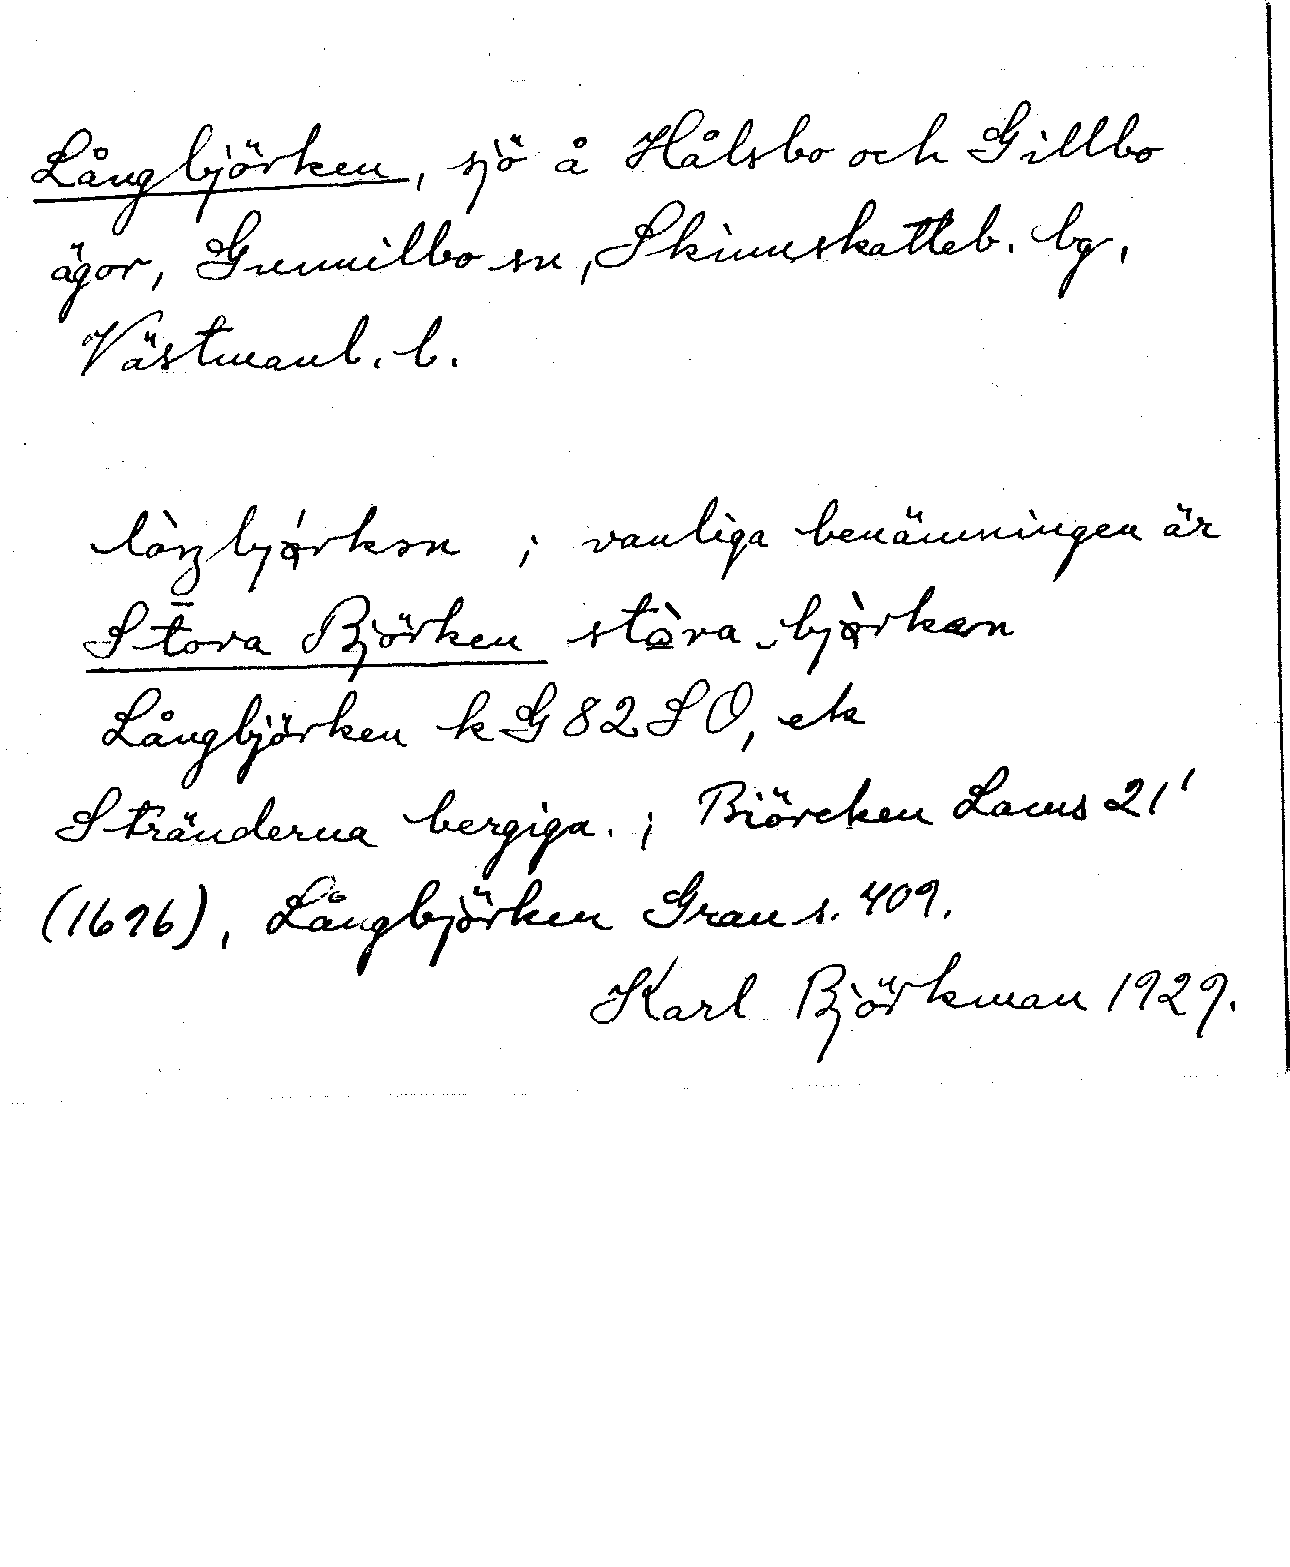 Långbjörken, sjö å Hålsbo och Gillbo
ägor, Gunnilbo sn, Skinnskatteb. bg,
Västmanl. l.
; vanliga benämningen är
Stora Björken
Långbjörken k G 82 S O, ek
Stränderna bergiga. ; Biörcken Lacus 21'
(1696), Långbjörken Grau s. 409.
Karl Björkman 1929.